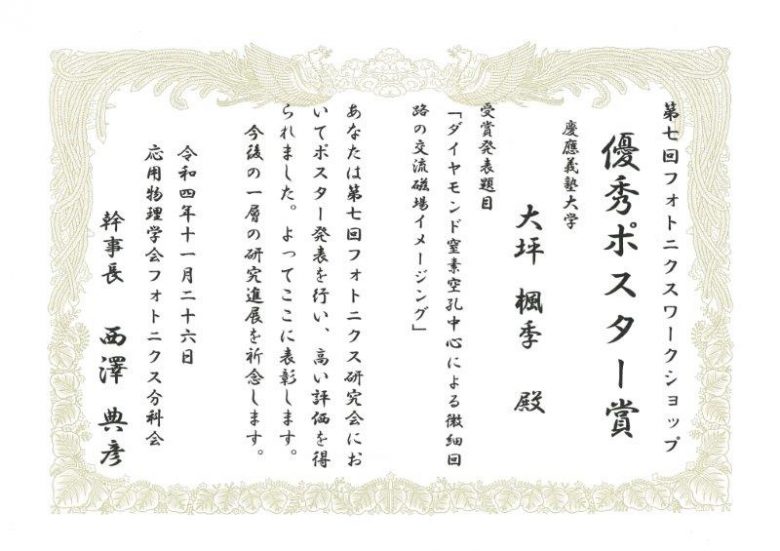 第七回フォトニクスワークショップ
優秀ポスター賞
慶應義塾大学
大坪 楓季 殿
受賞発表題目
「ダイヤモンド窒素空孔中心による微細回
路の交流磁場イメージング」
あなたは第七回フォトニクス研究会にお
いてポスター発表を行い、高い評価を得
られました。よってここに表彰します。
今後の一層の研究進展を祈念します。
令和四年十一月二十六日
応用物理学会フォトニクス分科会
幹事長 西澤 典彦